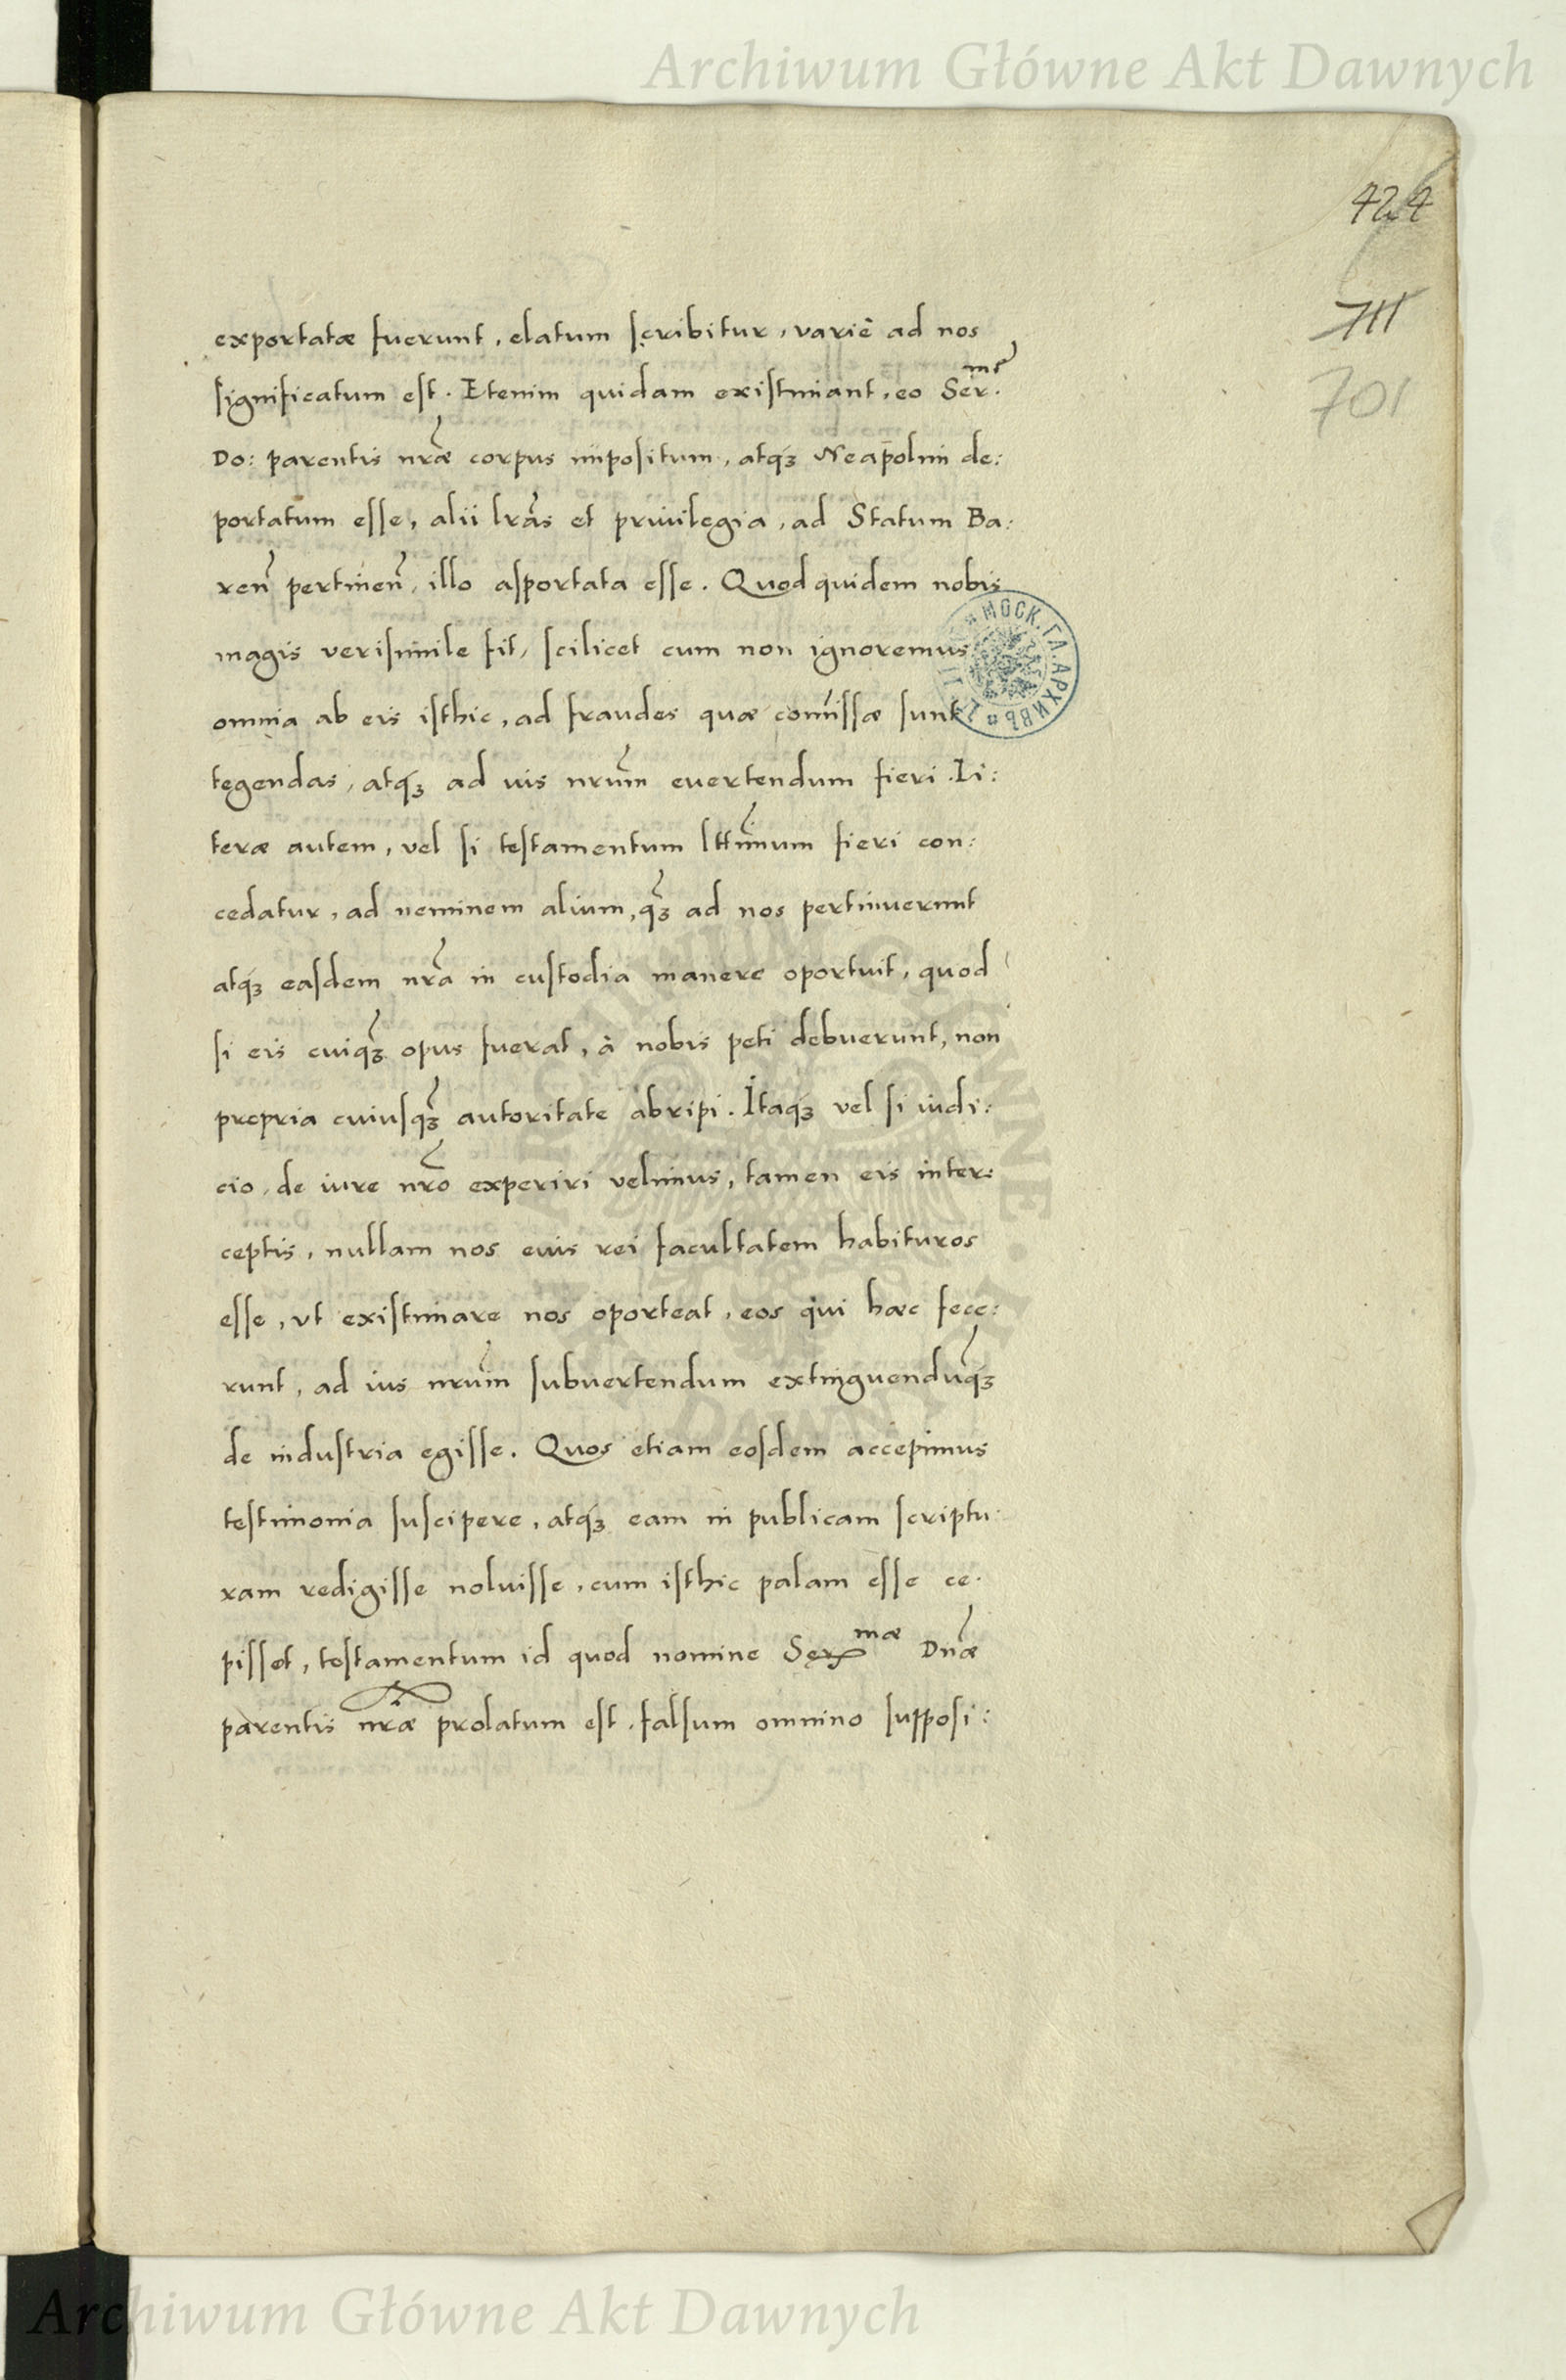 Archiwum Główne Akt Dawnych
424
711
701
exportatæ fuerunt, elatum scribitur, variè ad nos
significatum est. Etenim quidam existimant, eo Ser.
Do: parentis nræ corpus impositum, atq3 Neapolim de:
portatum esse, alii lras et privilegia, ad Statum Ba:
ren pertinen, illo asportata esse. Quod quidem nobis
magis verisimile fit, scilicet cum non ignoremus
omnia ab eis isthic, ad fraudes quæ comissæ sunt
tegendas, atq3 ad ius nrum evertendum fieri. Li:
teræ autem, vel si testamentum lttimum fieri con:
cedatur, ad neminem alium, q3 ad nos pertinuerunt
atq3 easdem nra in custodia manere oportuit, quod
si eis cuiq3 opus fuerat, à nobis peti debuerunt, non
propria cuiusq3 autoritate abripi. Itaq3 vel si iudi:
cio, de iure nro experiri velimus, tamen eis inter:
ceptis, nullam nos eius rei facultatem habituros
esse, vt existimare nos oporteat, eos qui hæc fece:
runt, ad ius nrum subvertendum extinguenduq3
de industria egisse. Quos etiam eosdem accepimus
testimonia suscipere, atq3 eam in publicam scriptu:
ram redigisse noluisse, cum isthic palam esse ce.
pisset, testamentum id quod nomine Ser mæ Dnæ
parentis nræ prolatum est, falsum omnino supposi:
МОСК. ГЛ. АРХИВЪ
ARCHIWUM GŁÓWNE AKT DAWNYCH
Archiwum Główne Akt Dawnych